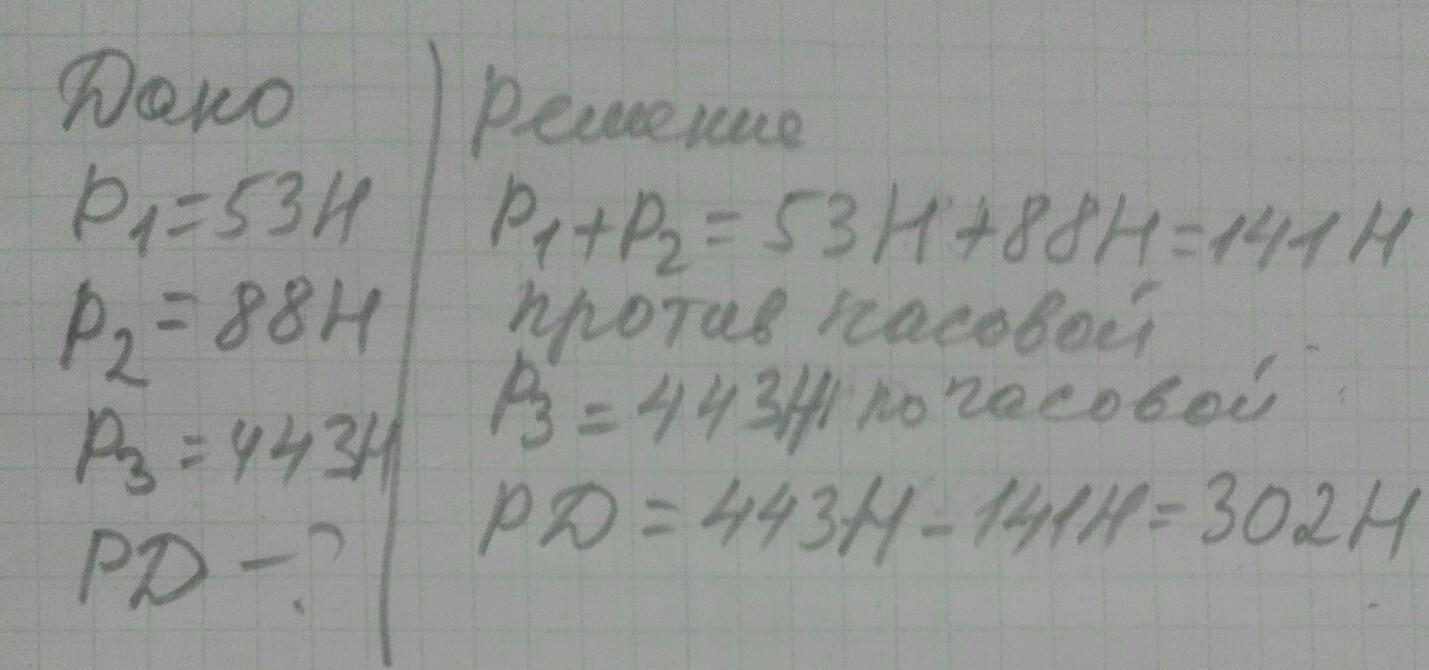 Дано
P₁=53Н
P₂=88Н
P₃=443Н
РД-?
Решение
P₁+P₂=53Н+88Н=141Н
против часовой
P₃=443Н по часовой
РД=443Н-141Н=302Н